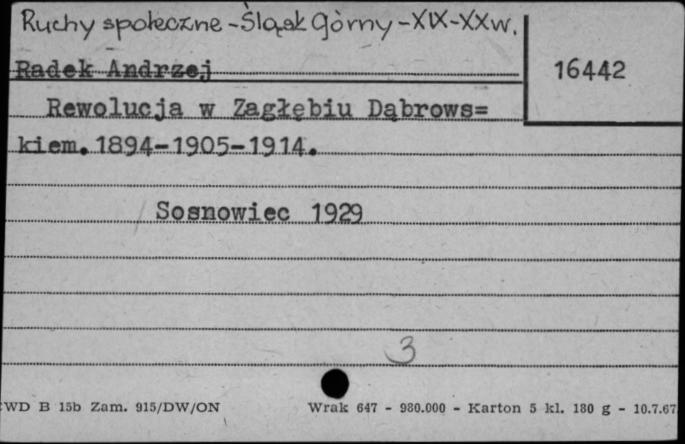 Ruchy społeczne - Śląsk Górny - XIX-XXw.
16442
Radek Andrzej
Rewolucja w Zagłębiu Dąbrows=
kiem. 1894-1905-1914.
Sosnowiec 1929
3
WD B 15b Zam. 915/DW/ON Wrak 647 - 980.000 - Karton 5 kl. 180 g - 10.7.67